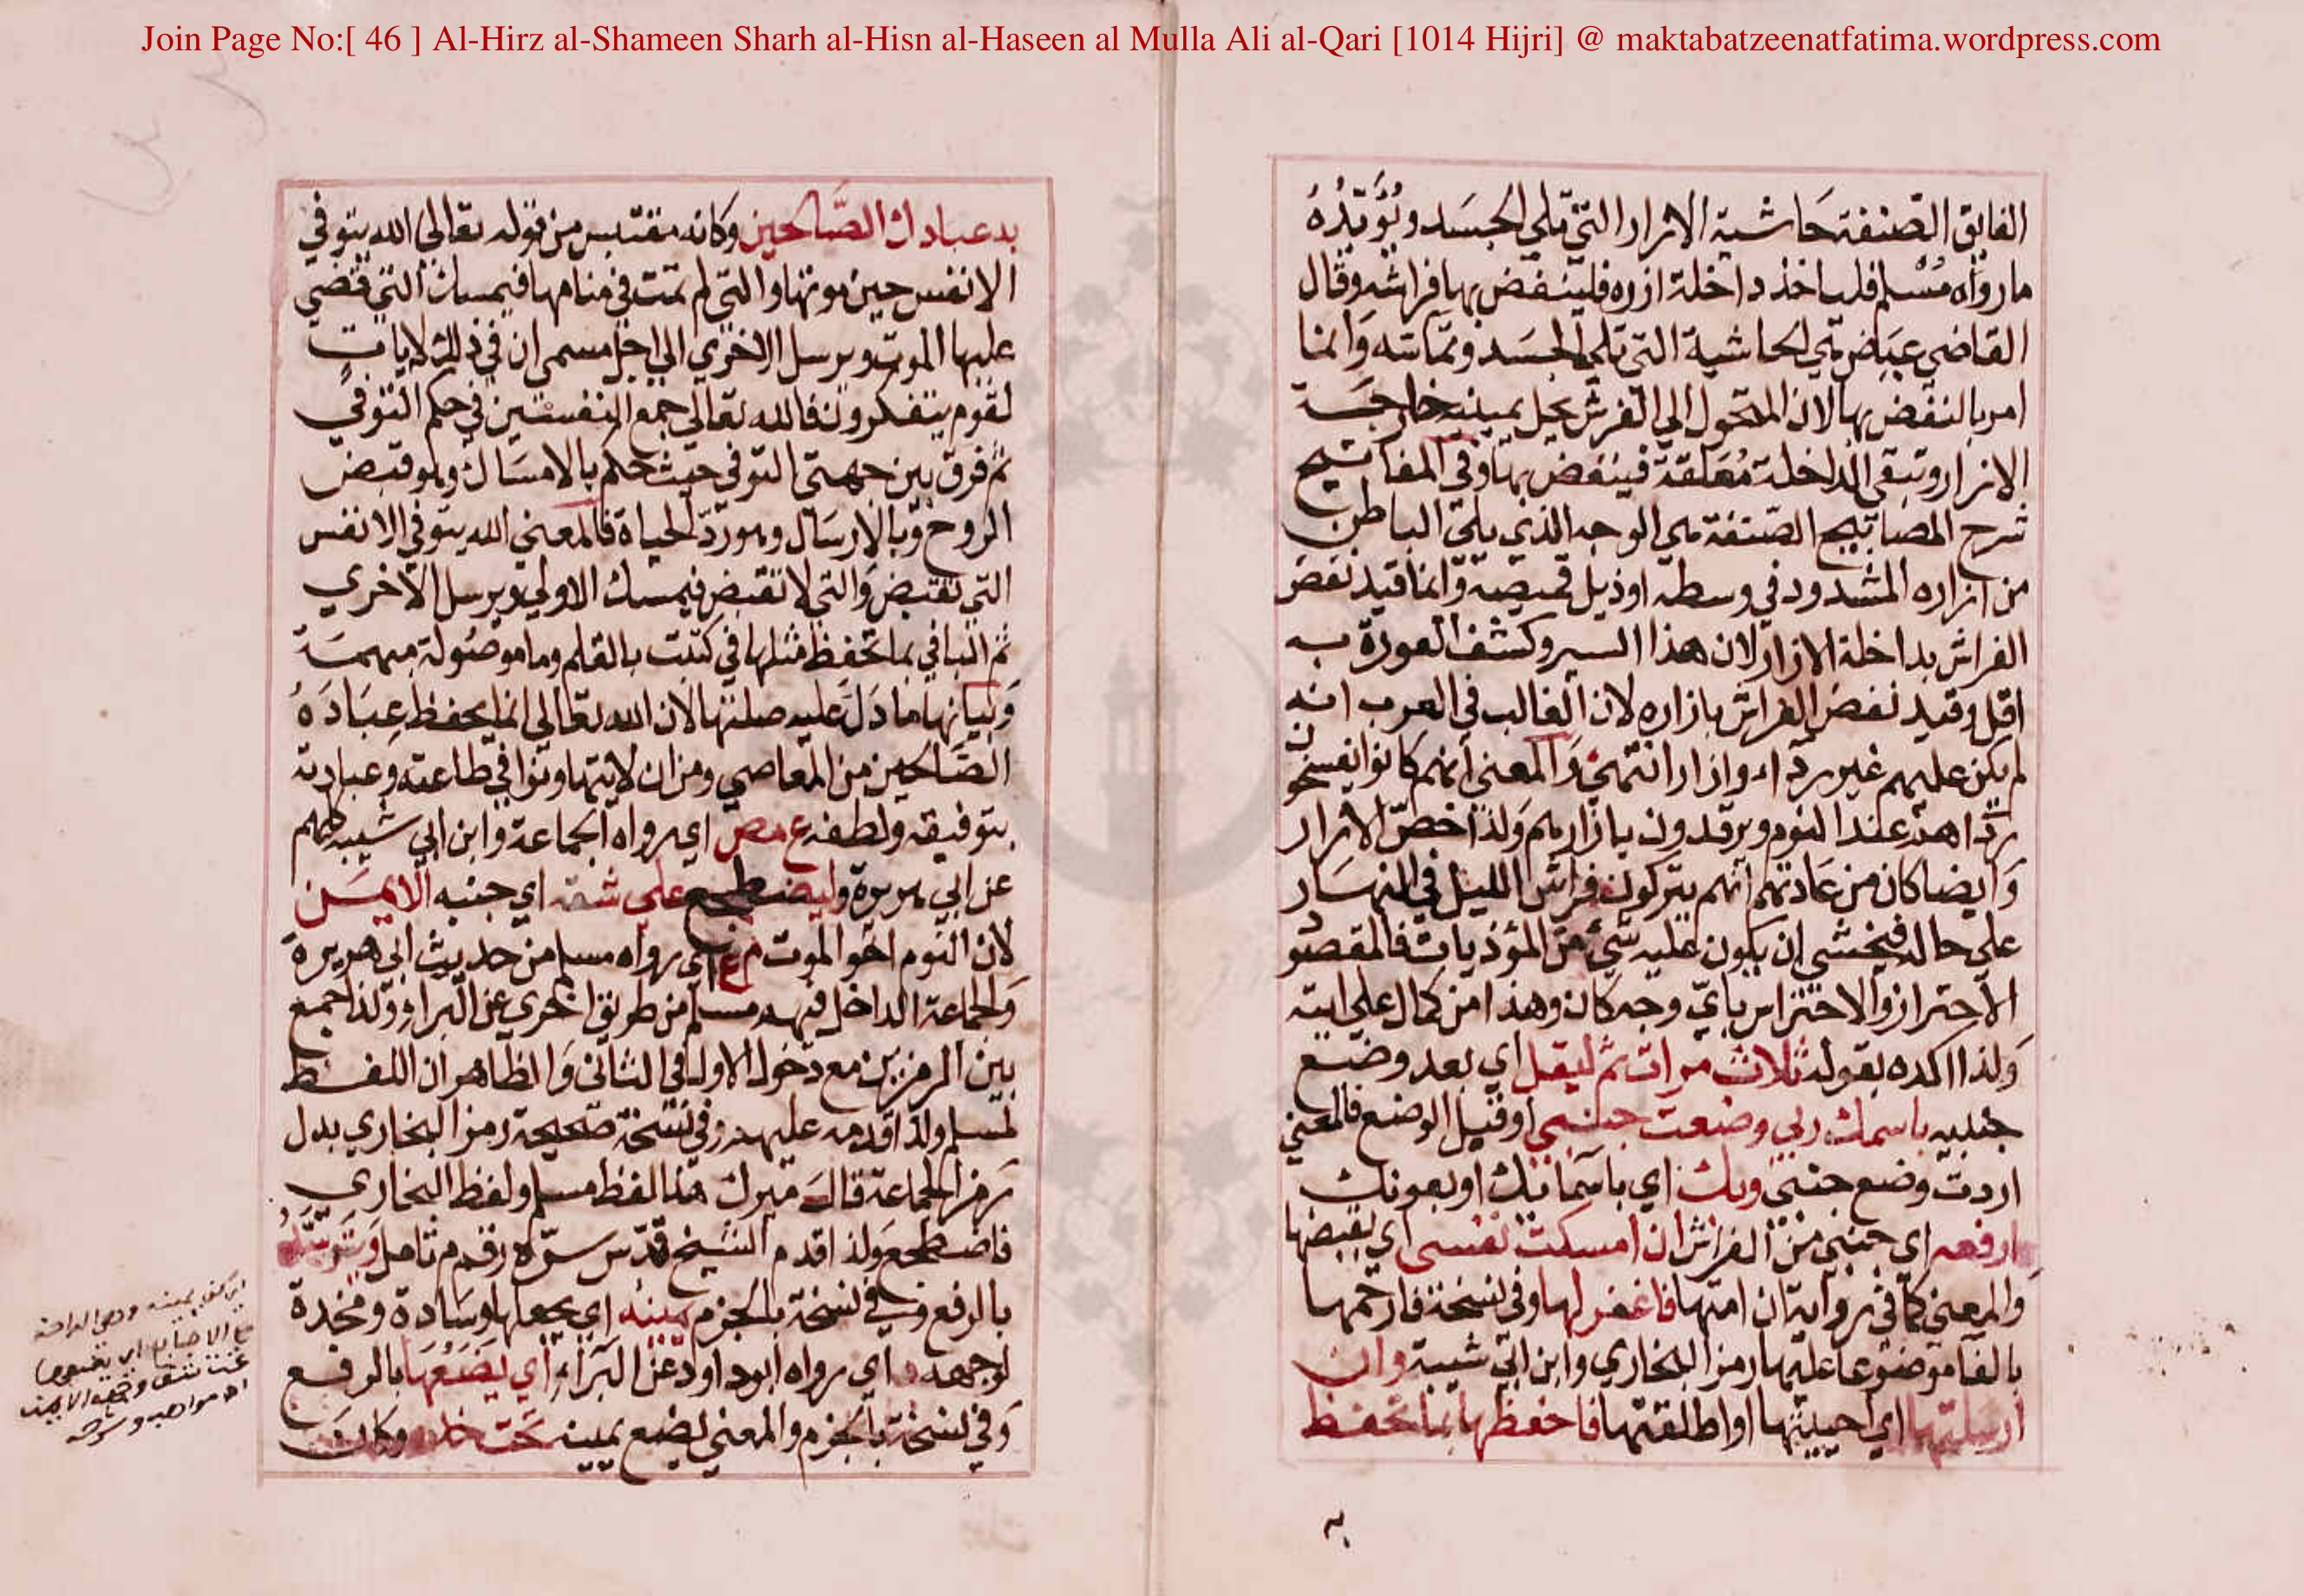 Join Page No:[ 46 ] Al-Hirz al-Shameen Sharh al-Hisn al-Haseen al Mulla Ali al-Qari [1014 Hijri] @ maktabatzeenatfatima.wordpress.com
الفايق الصنفة حَاشية الازار التي تلي الجسَد ويُؤيّدُهُ
ما رواه مُسْلم فلياخذ داخلة ازره فلينفض بها فراشه وقال
القاضي عيَاض هي الحاشية التي تلي الجسَد وتماسّه وَانما
امر بالنفض بها لان المتحول الي الفرش يحل بيمينه خارجَة
الازار وتبقي الداخلة مُعَلقة فينفض بها وفي المفاتيح
شرح المصابيح الصّنفة هي الوجه الذي يلي الباطن
من ازاره المشدود في وسطه او ذيل قميصه وَّانما قيد نفض
الفراش بداخلة الازار لان هذا السير وكشف العورة به
اقل وقيد نفض الفراش بازاره لان الغالب في العرب انه
لم يكن عليهم غير رداء وازار انتهي وَالمعني انهم كانوا
عند النوم ويرقدون بازارهم وَلذا خصّ الازار
وَايضا كان من عَادتهم انهم يتركون فراش الليل في النهسَار
علي حاله فيخشي ان يكون عليه شيء من المؤذيات فالمقصُو
الاحتراز والاحتراس بايّ وجه كان وهذا من كمال
وَلذا اكده بقوله ثلاث مرات ثم ليقل اي بعد وضع
جنبه باسمك ربي وضعت جنبي او قبل الوضع فالمعني
اردت وضع جنبي وبك اي باسمايك او بعونك
ارفعه اي جنبي من الفراش ان امسكت نفسي اي بقبضها
وَالمعني كما في رواية ان امتها فاغفر لها وفي نسخة فارحمها
بالفا موضوعا عليها رمز البخاري وابن ابي شيبة وان
ارسلتها اي احييتها او اطلقتها فاحفظها بما تحفظ
به
به عبادك الصَّالحين وكانه مقتبس من قوله تعالي الله يتوفي
الانفس حين موتها والتي لم تمت في منامها فيمسك التي قضي
عليها الموت ويرسل الاخري الي اجل مسمي ان في ذلك لايات
لقوم يتفكرون فالله تعالي جمع النفسين في حكم التوفي
ثم فرق بين جهتي التوفي حيث حكم بالامسَاك وهو قبض
الروح وَّبالارسَال وهو ردّ الحياة فالمعني الله يتوفي الانفس
التي تقبض وَالتي لا تقبض فيمسك الاولي ويرسل الاخري
ثم البا في بما تحفظ مثلها في كتبت بالقلم وما موصُولة مبهمَة
وَبيانها ما دَل عليه صلتها لان الله تعالي انما يحفظ عِبَادَهُ
الصّالحين من المعاصي ومن ان لا يتهاونوا في طاعته وَعبادته
بتوفيقه ولطفه ع مص اي رواه الجماعة وابن ابي شيبه كلهم
عن ابي هريرة وليضطجع علي شقه اي جنبه الايمَن
لان النوم اخو الموت م ع اي رواه مسلم من حديث ابي هريرة
وَالجماعة الداخل فيهم مسلم من طريق اخري عن البراء وَّلذا جمع
بين الرمزين مع دخول الاول في الثاني وَالظاهر ان اللفظ
لمسلم ولذا قدمه عليهم وفي نسخة صَحيحة رمز البخاري بدل
رمز الجماعة قالَ ميرك هذا لفظ مسلم ولفظ البخاري
فاضطجع وَلذا قدم الشيخ قدّس سرّه رقم م تامل وَيَتَوَسَّدُ
بالرفع وفي نسخة بالجزم يمينه اي يجعلها وسَادة ومخدة
لوجهه د اي رواه ابو داود عن البرَاء اي يَضَعُهَا بالرفع
وَفي نسخة بالجزم والمعني يضع يمينه تحت خده وكانَ